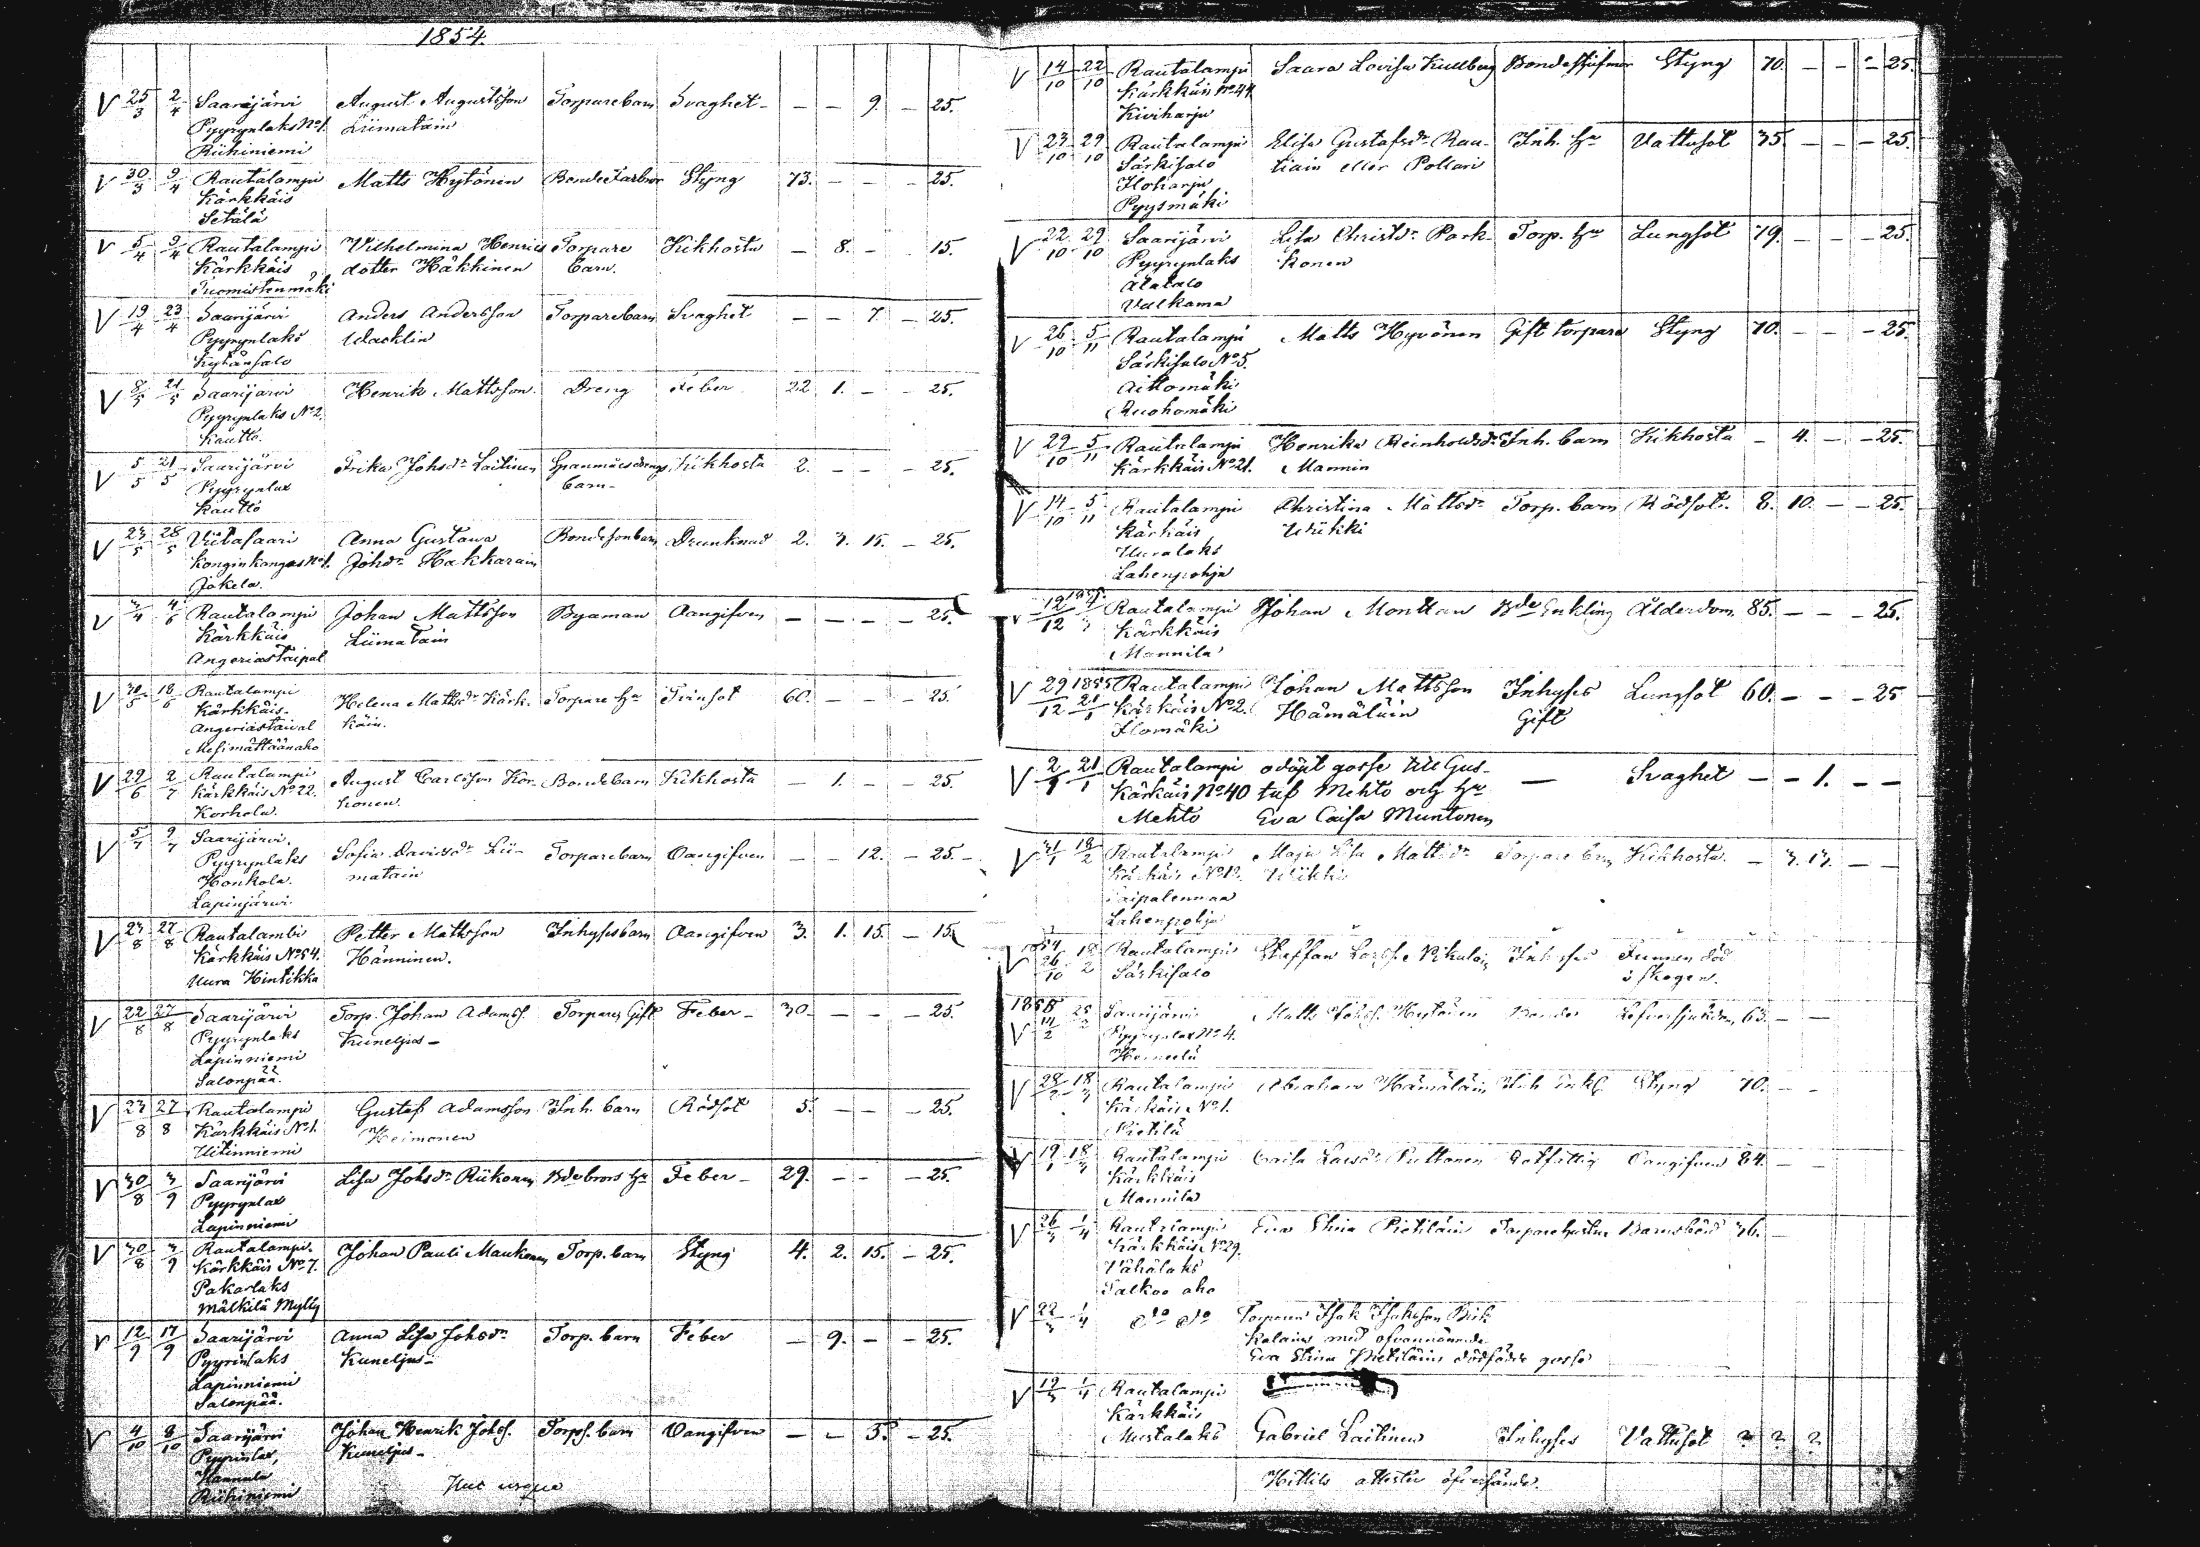 1854.
V 25/3 2/4 Saarijärvi August Augustsson Torparebarn Svaghet - - 9. - 25.
Pyyrynlaks No 1. Liimatain
Riihiniemi
V 30/3 9/4 Rautalampi Matts Hytönin Bonde Styng 73. - - - 25.
Kärkkäis
Setälä
V 5/4 9/4 Rautalampi Vilhelmina Henrics Torpare Kikhosta - 8. - 15.
Kärkkäis dotter Häkkinen barn.
Tuomistenmäki
V 19/4 23/4 Saarijärvi Anders Andersson Torparebarn Svaghet - - 7. - 25.
Pyyrynlaks Wacklin
Kytänsalo
V 8/5 21/5 Saarijärvi Henrik Mattsson. Dreng Feber 22 1. - - 25.
Pyyrynlaks No 2.
Kautto.
V 5/5 21/5 Saarijärvi Frika Johsdr Laitinen Kikhosta 2. - - - 25.
Pyyrynlax barn-
Kautto
V 23/5 28/5 Viitasaari Anna Gustawa Bondesonbarn Drunknad 2. 7. 15. - 25.
Konginkangas No 1. Johdr Hakkarain
Jokela.
V 4/6 Rautalampi Johan Mattsson Byaman Oangifven - - - - 25.
Kärkkäis Liimatain
Angeriastaipal
V 30/5 18/6 Rautalampi Helena Mattsdr Kärk- Torpare hu Tvinsot 60. - - - 25.
Kärkkäis. käin.
Angeriastaival
Mesimättäänaho
V 29/6 2/7 Rautalampi August Carlsson Kor- Bondebarn Kikhosta - 1. - - 25.
Kärkkäis No 22. honen.
Korhola.
V 5/7 9/7 Saarijärvi. Sofia Davidsdr Lii- Torparebarn Oangifven - - 12. - 25.
Pyyrynlaks matain
Honkola.
Lapinjärvi.
V 23/8 27/8 Rautalambi Petter Mattsson Inhysesbarn Oangifven 3. 1. 15. - 15.
Kärkkäis No 54. Hänninen.
Uura Hintikka
V 22/8 27/8 Saarijärvi Torp. Johan Adamss. Torpares Gift Feber - 30. - - - 25.
Pyyrynlaks Kuneljus -
Lapinniemi
Salonpää.
V 23/8 27/8 Rautalampi Gustaf Adamsson Inh. barn Rödsot 5. - - - 25.
Kärkkäis No 1. Heimonen
Uitinniemi
V 30/8 3/9 Saarijärvi Lisa Johsdr Riikonen Bdebrors hu Feber - 29. - - - 25.
Pyyrynlax
Lapinniemi
V 30/8 3/9 Rautalampi. Johan Pauli Maukonen Torp. barn Styng 4. 2. 15. - 25.
Kärkkäis No 7.
Pakarlaks
Mälkilä Mylly
V 12/9 17/9 Saarijärvi Anna Lisa Johsdr Torp. barn Feber - 9. - - 25.
Pyyrinlaks Kuneljus -
Lapinniemi
Salonpää.
V 4/10 8/10 Saarijärvi Johan Henrik Johss. Torps. barn Oangifven - - 5. - 25.
Pyyrinlax, Kuneljus -
Hannula
Riihiniemi
Huc usque
V 14/10 22/10 Rautalampi Saara Lovisa Kullberg Styng 70. - - - 25.
Kärkkäis No 44
Kiviharju
V 23/10 29/10 Rautalampi Elisa Gustafsdr Rau- Inh. hu Vattusot 75. - - - 25.
Särkisalo tiain eller Pollari
Iloharju
Pyysmäki
V 22/10 29/10 Saarijärvi Lisa Christdr Park- Torp. hu Lungsot 79. - - - 25.
Pyyrynlaks konen
Alatalo
Valkama
V 26/10 5/11 Rautalampi Matts Hyvönen Gift torpare Styng 70. - - - 25.
Särkisalo No 5.
Aittomäki
Ruohomäki
V 29/10 5/11 Rautalampi Henrika Reinholdsdr Inh. barn Kikhosta - 4. - - 25.
Kärkkäis No 21. Mannin
V 14/10 5/11 Rautalampi Christina Mattsdr Torp. barn Rödsot. 8. 10. - - 25.
Kärkäis Wiikki
Uuralaks
Lahenpohja
V 12/12 Rautalampi Johan Monttan Bde Enkling Ålderdom. 85. - - - 25.
Kärkkäis
Mannila
V 29/12 1855 21/1 Rautalampi Johan Mattsson Inhyses Lungsot 60. - - - 25
Kärkkäis No 2. Hämäläin Gift
Ilomäki
V 2/1 21/1 Rautalampi odöpt gosse till Gus- - Svaghet - - 1. - -
Kärkäis No 40 taf Mehto och hu
Mehto Eva Caisa Muntonen
V 31/1 18/2 Rautalampi Maja Lisa Mattsdr Torpare barn Kikhosta. - 3. 13. - -
Kärkäis Wiikki
Taipalenmaa
Lahenpohja
V 1854 26/10 18/2 Rautalampi Steffan Larss. Nikulain Inhyses Funnen död
Särkisalo i skogen.
1855
V 25/2 Saarijärvi Matts Johss. Hytönen Bonde 63. - -
Pyyrynlax No 4.
V 28/2 18/3 Rautalampi Abraham Hämäläin Inh. enkl. Styng 70. - -
Kärkäis No 1.
Pietilä
V 19/1 18/3 Rautalampi Caisa Larsdr Puttonen Rotfattig Oangifven 84. - -
Kärkkäis
Mannila
V 26/3 1/4 Rautalampi Eva Stina Pietiläin Torparehustru Barnsbörd 36. -
Kärkkäis No 29.
Vähälaks
Talkoo aho
V 22/3 1/4 do do Torparen Isak Isaksson Pirk
kalains med ofvannämnde
Eva Stina Pietiläins dödfödde gosse
V 19/3 1/4 Rautalampi
Kärkkäis
Mustalaks Gabriel Laitinen Inhyses Vattusot ? ? ?
Hittils attester öfversände.